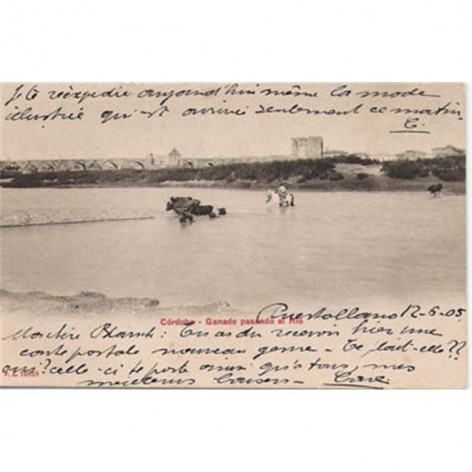 Je te réexpédie aujourd'hui même la mode
illustrée qui est arrivée seulement ce matin
C.
Córdoba - Ganado pasando el Rio
Puertollano 12-6-05
Blanche : Tu as du recevoir hier une
carte postale nouveau genre - Te plait-elle??
oui? Celle-ci te porte ainsi qu'à tous, mes
meilleurs baisers -